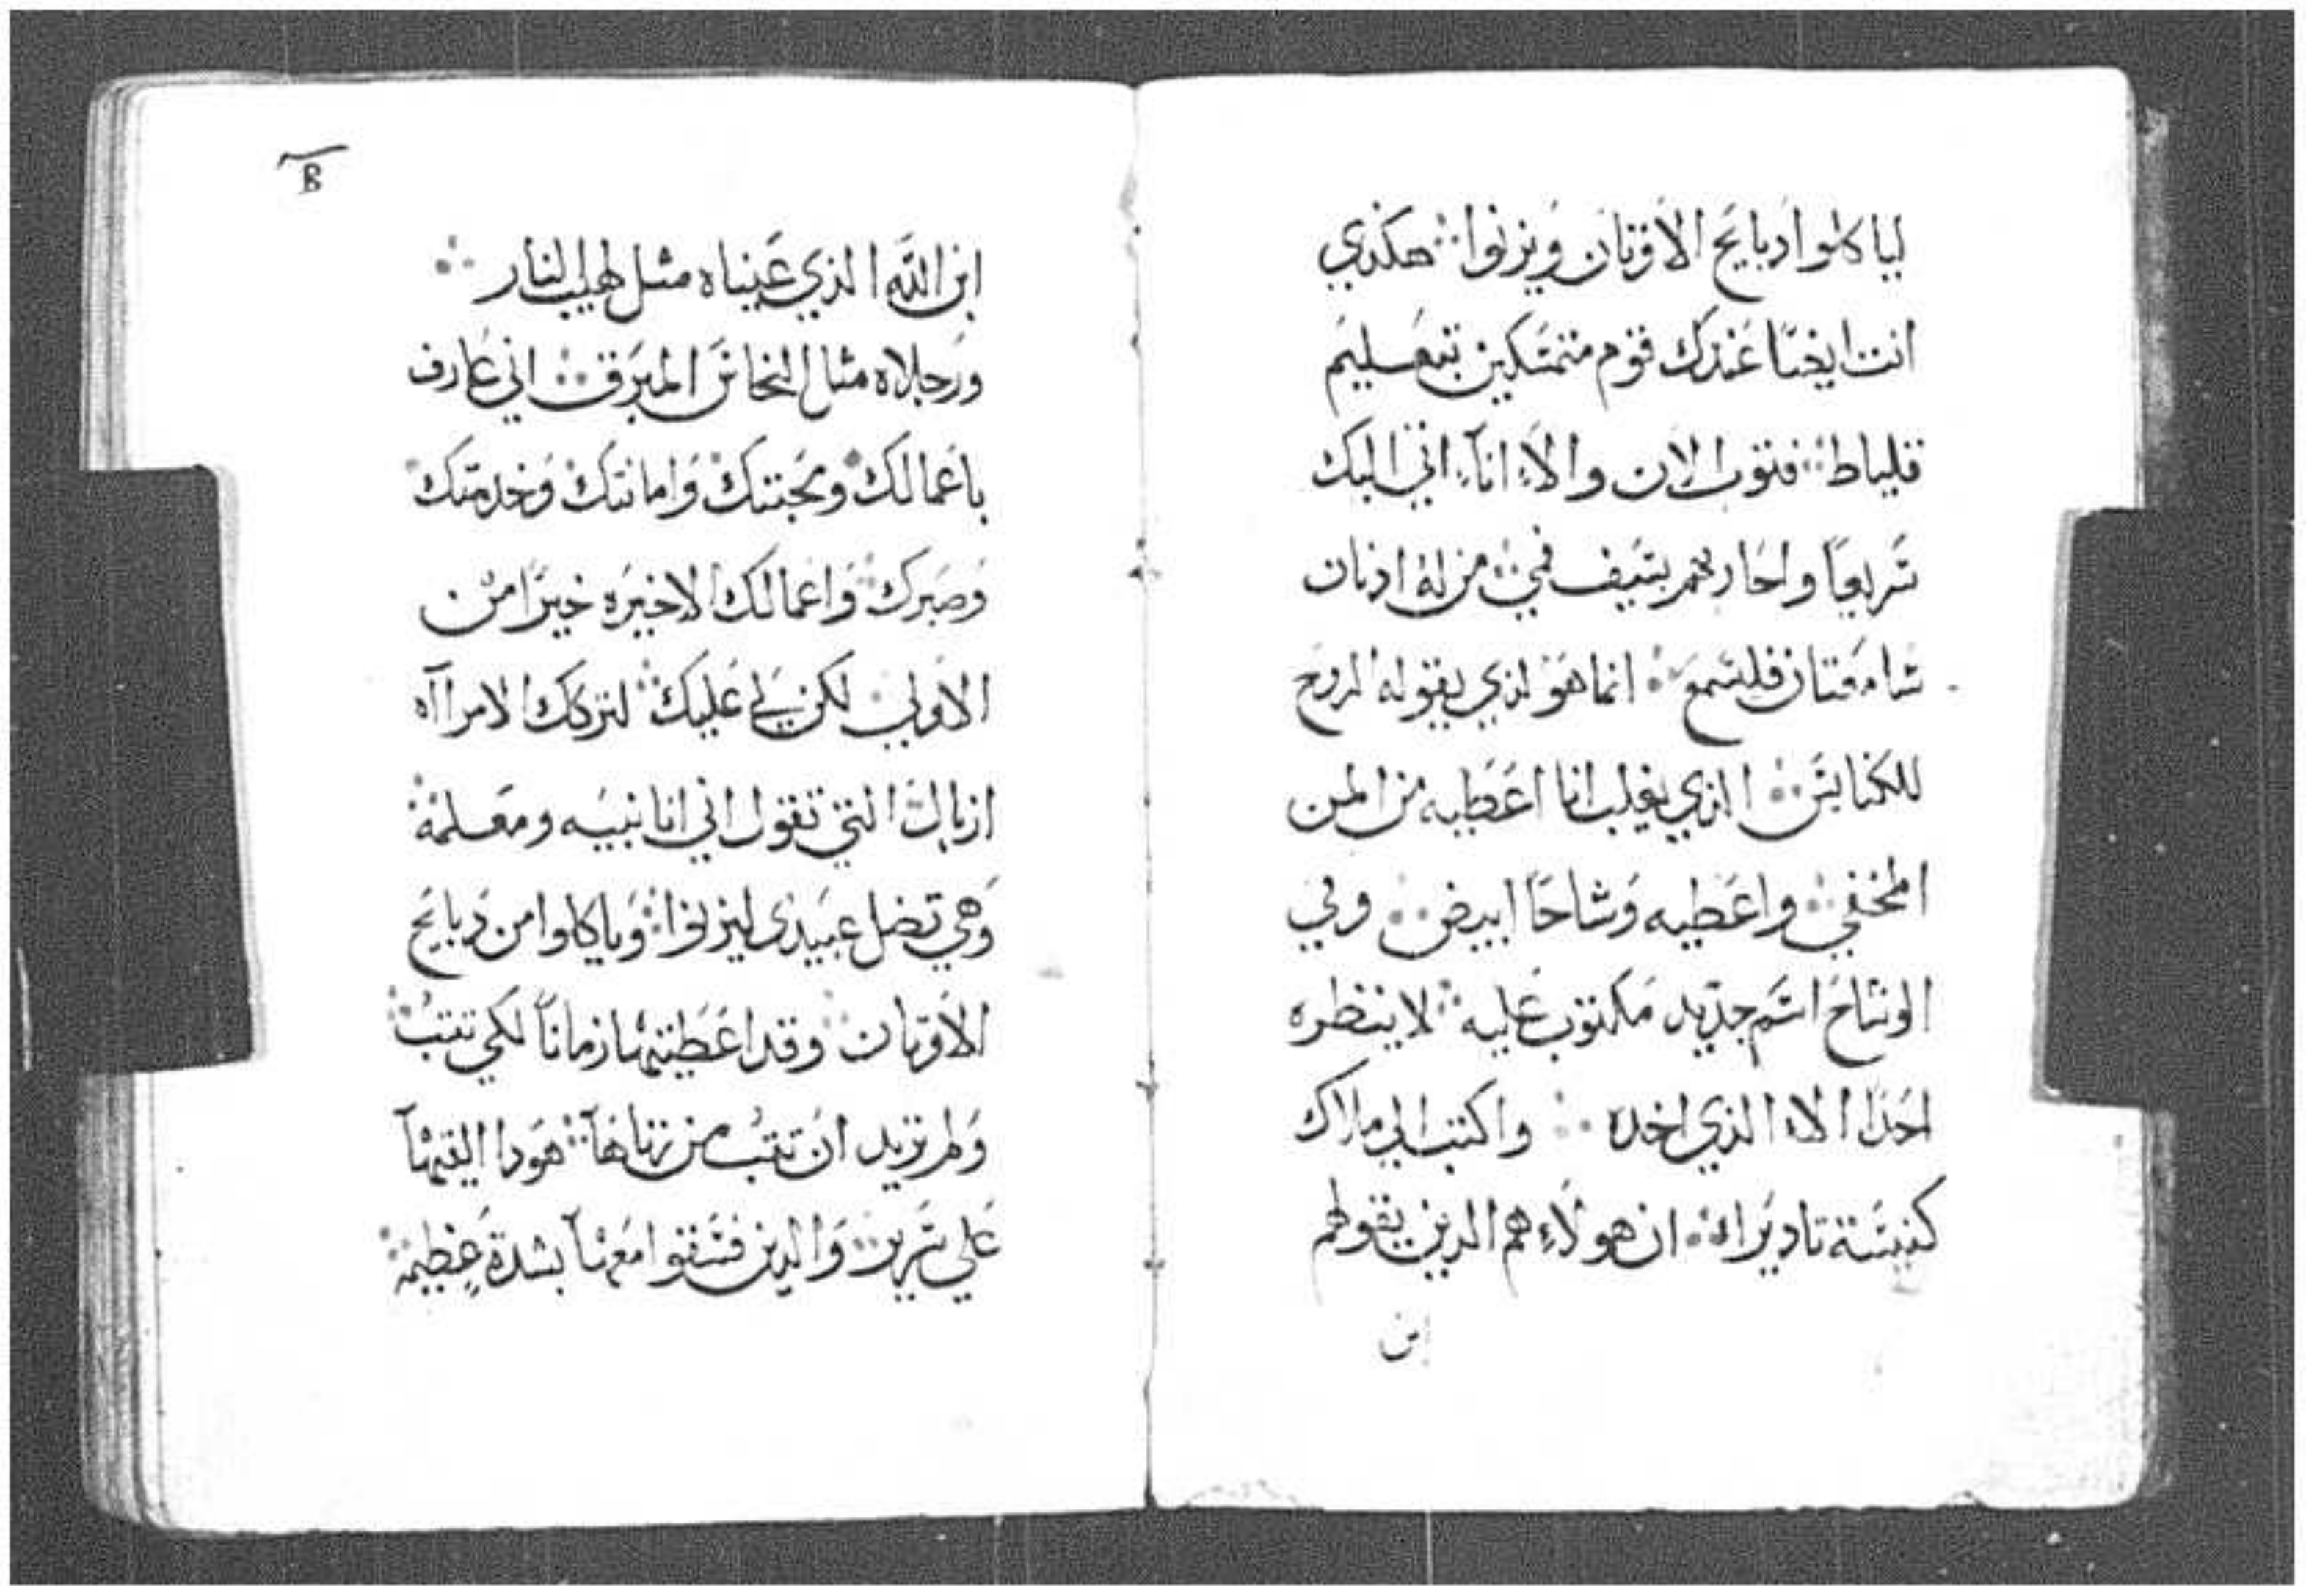 لياكلوا دبايح الاوتان ويزنوا هكذي
انت ايضا عندك قوم متمسكين بتعليم
قليباط فتوب الان والا انا اتي اليك
سريعا واحاربهم بسيف فمي من له ادنان
سامعتان فليسمع انما هو لذي يقوله الروح
للكنايس الذي يغلب انا اعطيه من المن
المخفي واعطيه وشاحا ابيض وفي
الوشاح اسم جديد مكتوب عليه لا ينظره
احدا الا الذي اخده واكتب الي ملاك
كنيسة تاديرا ان هولاء هم الدين يقولهم
ابن
B
ابن الله الذي عيناه مثل لهيب النار
ورجلاه مثل النحاس المبرق اني عارف
باعمالك ومحبتك وامانتك وخدمتك
وصبرك واعمالك الاخيره خيرا من
الاولي لكن لي عليك لتركك الامراه
ازبال التي تقول اني انا نبيه ومعلمة
وهي تضل عبيدي ليزنوا وياكلوا من دبايح
الاوتان وقد اعطيتها زمانا لكي تتب
ولم تريد ان تتب من زناها هودا القيها
علي سرير والدين فسقوا معها بشدة عظيمة